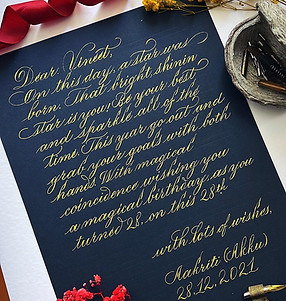 Dear Vineet,
On this day, a star was
born. That bright, shinin
star is you! Be your best
and sparkle all of the
time. This year go out and
grab your goals with both
hands. With magical
coincidence wishing you
a magical birthday, as you
turned 28, on this 28th
with lots of wishes,
Aakriti (Akku)
28.12.2021